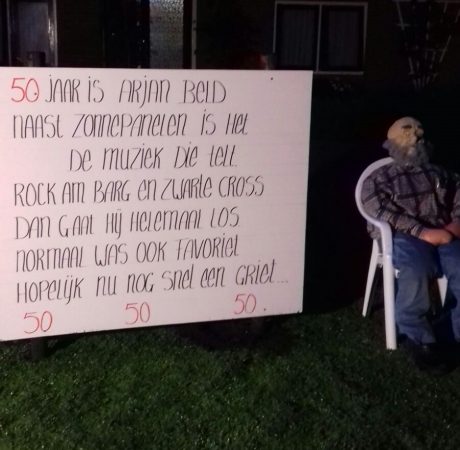 50 JAAR IS ARJAN BELD
NAAST ZONNEPANELEN IS HET
DE MUZIEK DIE TELT.
ROCK AM BARG EN ZWARTE CROSS
DAN GAAT HIJ HELEMAAL LOS.
NORMAAL WAS OOK FAVORIET
HOPELIJK NU NOG SNEL EEN GRIET...
50 50 50.